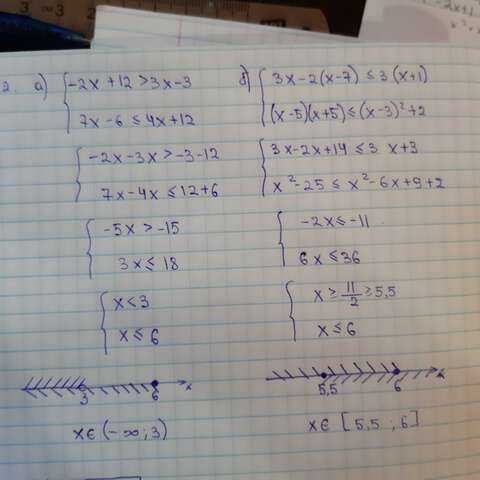 2. а) { -2x + 12 > 3x - 3
7x - 6 ≤ 4x + 12
{ -2x - 3x > -3 - 12
7x - 4x ≤ 12 + 6
{ -5x > -15
3x ≤ 18
{ x < 3
x ≤ 6
3 6 x
x ∈ (-∞; 3)
б) { 3x - 2(x - 7) ≤ 3(x + 1)
(x - 5)(x + 5) ≤ (x - 3)² + 2
{ 3x - 2x + 14 ≤ 3 x + 3
x² - 25 ≤ x² - 6x + 9 + 2
{ -2x ≤ -11
6x ≤ 36
{ x ≥ 11/2 ≥ 5,5
x ≤ 6
5,5 6
x ∈ [5,5 ; 6]